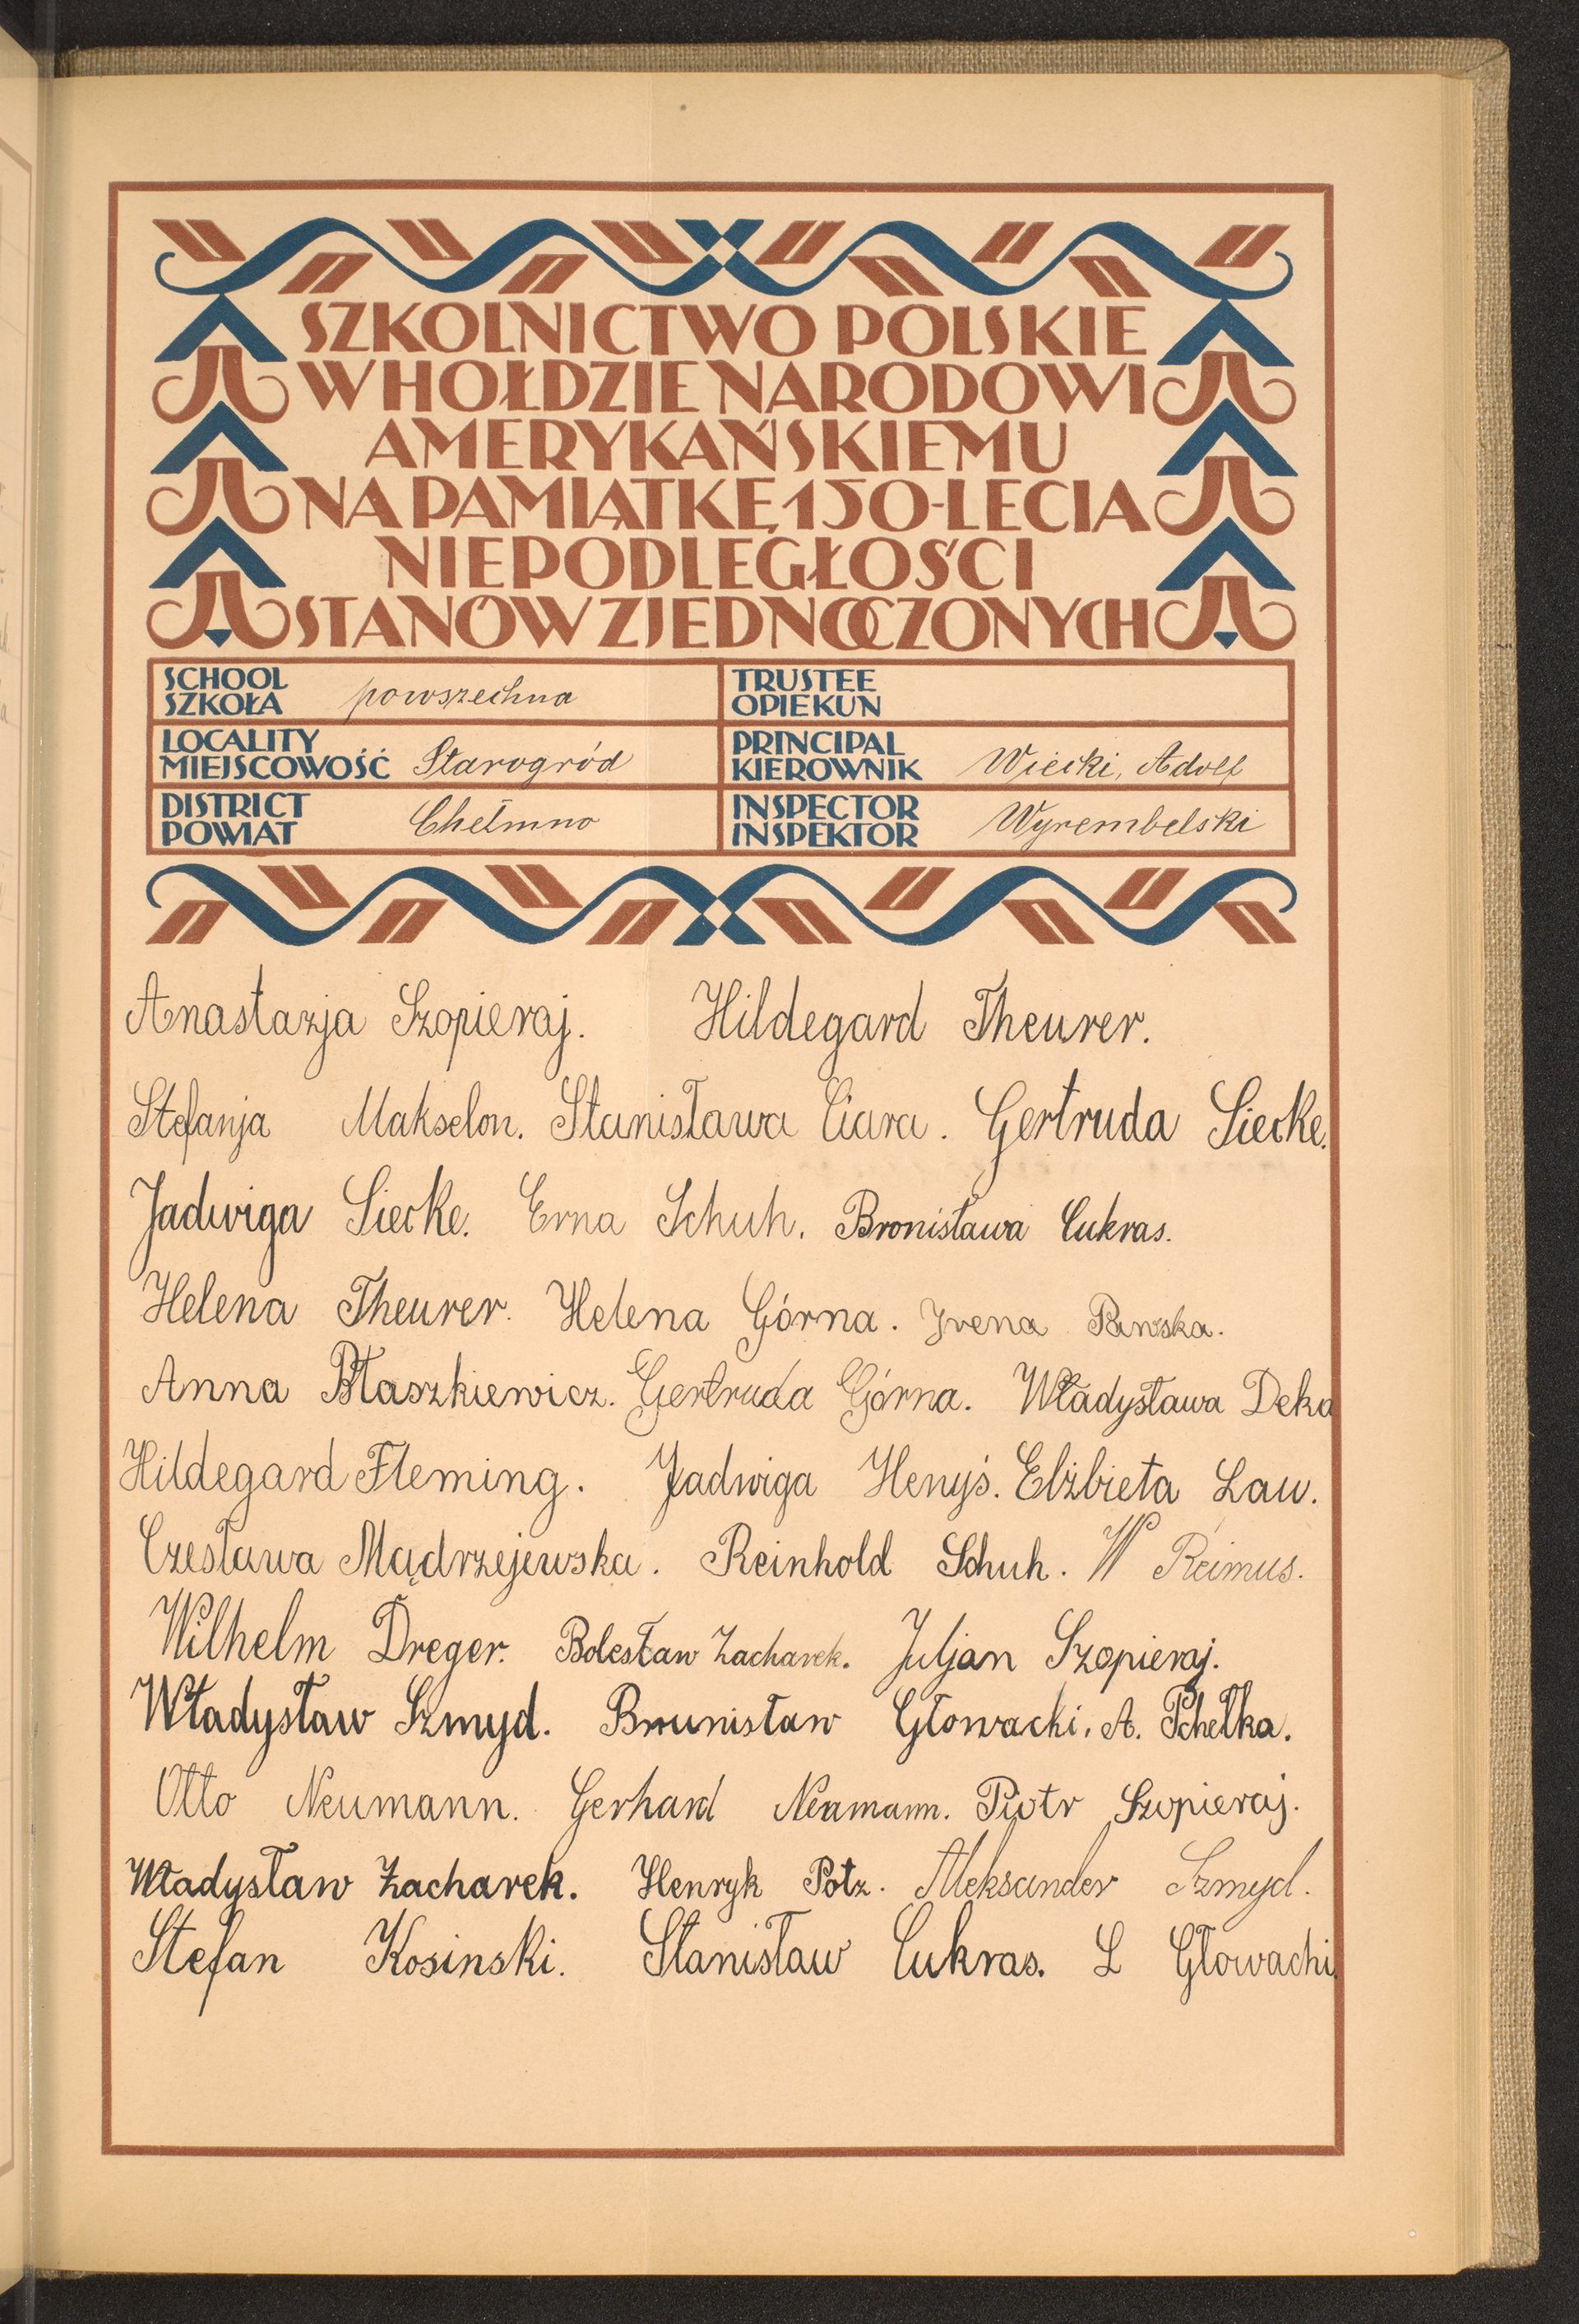 SZKOLNICTWO POLSKIE
W HOŁDZIE NARODOWI
AMERYKAŃSKIEMU
NA PAMIĄTKĘ 150-LECIA
NIEPODLEGŁOŚCI
STANÓW ZJEDNOCZONYCH
SCHOOL
SZKOŁA powszechna
TRUSTEE
OPIEKUN
LOCALITY
MIEJSCOWOŚĆ Starogród
PRINCIPAL
KIEROWNIK Wiecki, Adolf
DISTRICT
POWIAT Chełmno
INSPECTOR
INSPEKTOR Wyrembelski
Anastazja Szopieraj. Hildegard Theurer.
Stefanja Makselon. Stanisława Ciara. Gertruda Siecke.
Jadwiga Siecke. Erna Schuh. Bronisława Cukras.
Helena Theurer. Helena Górna. Irena
Anna Błaszkiewicz. Gertruda Górna. Władysława Deka
Hildegard Fleming. Jadwiga Henyś. Elżbieta Law.
Czesława Mądrzejewska. Reinhold Schuh. W Reimus.
Wilhelm Dreger. Bolesław Zacharek. Juljan Szopieraj.
Władysław Szmyd. Brunisław Głowacki. A. Pchełka.
Otto Neumann. Gerhard Neumann. Piotr Szopieraj.
Władysław Zacharek. Henryk Potz. Aleksander Szmyd.
Stefan Kosinski. Stanisław Cukras. L Głowacki.